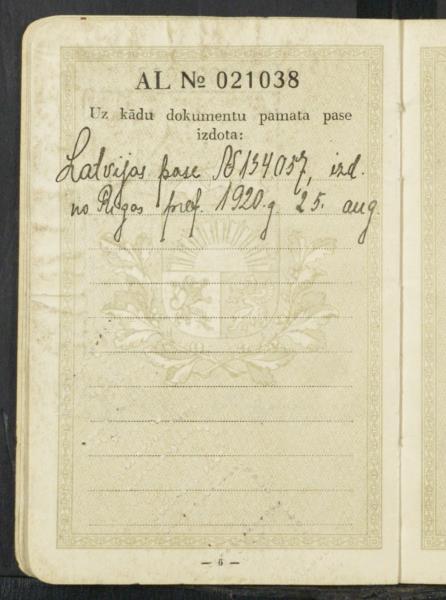 AL № 021038
Uz kādu dokumentu pamata pase
izdota:
Latvijas pase № 134057, izd.
no Rīgas pref. 1920.g 25. aug.
— 6 —